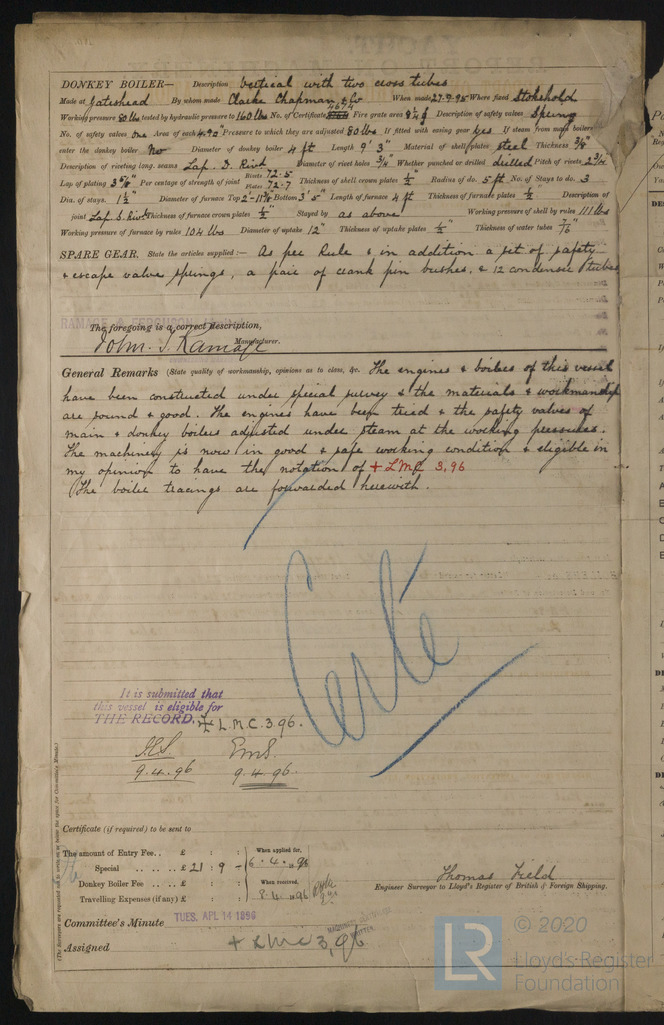 DONKEY BOILER— Description Vertical with two cross tubes
Made at Gateshead By whom made Clarke Chapman & Co When made 27-9-95 Where fixed Stokehold
Working pressure 80 lbs tested by hydraulic pressure to 160 lbs No. of Certificate 4674 Fire grate area Description of safety valves Spring
No. of safety valves one Area of each 4.90" Pressure to which they are adjusted 80 lbs If fitted with easing gear yes If steam from main boilers
enter the donkey boiler No Diameter of donkey boiler 4 ft Length 9' 3" Material of shell plates steel Thickness 3/8"
Description of riveting long. seams Lap. D. Rivt Diameter of rivet holes 3/4" Whether punched or drilled drilled Pitch of rivets 2 3/4"
Lap of plating 3 5/8" Per centage of strength of joint Rivets 72.5 Plates 72.7 Thickness of shell crown plates 1/2" Radius of do. 5 ft No. of Stays to do. 3
Dia. of stays. 1 1/2" Diameter of furnace Top 2-11 3/4" Bottom 3' 5" Length of furnace 4 ft Thickness of furnace plates 1/2" Description of
joint Lap. S. Rivt Thickness of furnace crown plates 1/2" Stayed by as above Working pressure of shell by rules 111 lbs
Working pressure of furnace by rules 104 lbs Diameter of uptake 12" Thickness of uptake plates 1/2" Thickness of water tubes 7/16"
SPARE GEAR. State the articles supplied:— As per Rule & in addition a set of safety
& escape valve springs, a pair of crank pin bushes, & 12 condenser tubes
RAMAGE & FERGUSON
The foregoing is a correct description,
John. S. Ramage Manufacturer.
General Remarks (State quality of workmanship, opinions as to class, &c. The engines & boilers of this vessel
have been constructed under special survey & the materials & workmanship
are sound & good. The engines have been tried & the safety valves of
main & donkey boilers adjusted under steam at the working pressures.
The machinery is now in good & safe working condition & eligible in
my opinion to have the notation of + LMC 3,96
The boiler tracings are forwarded herewith.
Certe
It is submitted that
this vessel is eligible for
THE RECORD. + L.M.C. 3.96.
9.4.96 9.4.96
Certificate (if required) to be sent to
The amount of Entry Fee.. £ : : When applied for,
Special .. .. .. £ 21 : 9 – 6.4.96
Donkey Boiler Fee .. .. £ : : When received,
Travelling Expenses (if any) £ : : 8.4.96
Thomas Field
Engineer Surveyor to Lloyd's Register of British & Foreign Shipping.
Committee's Minute TUES. APL 14 1896
Assigned + LMC 3,96
© 2020
LR Lloyd's Register
Foundation